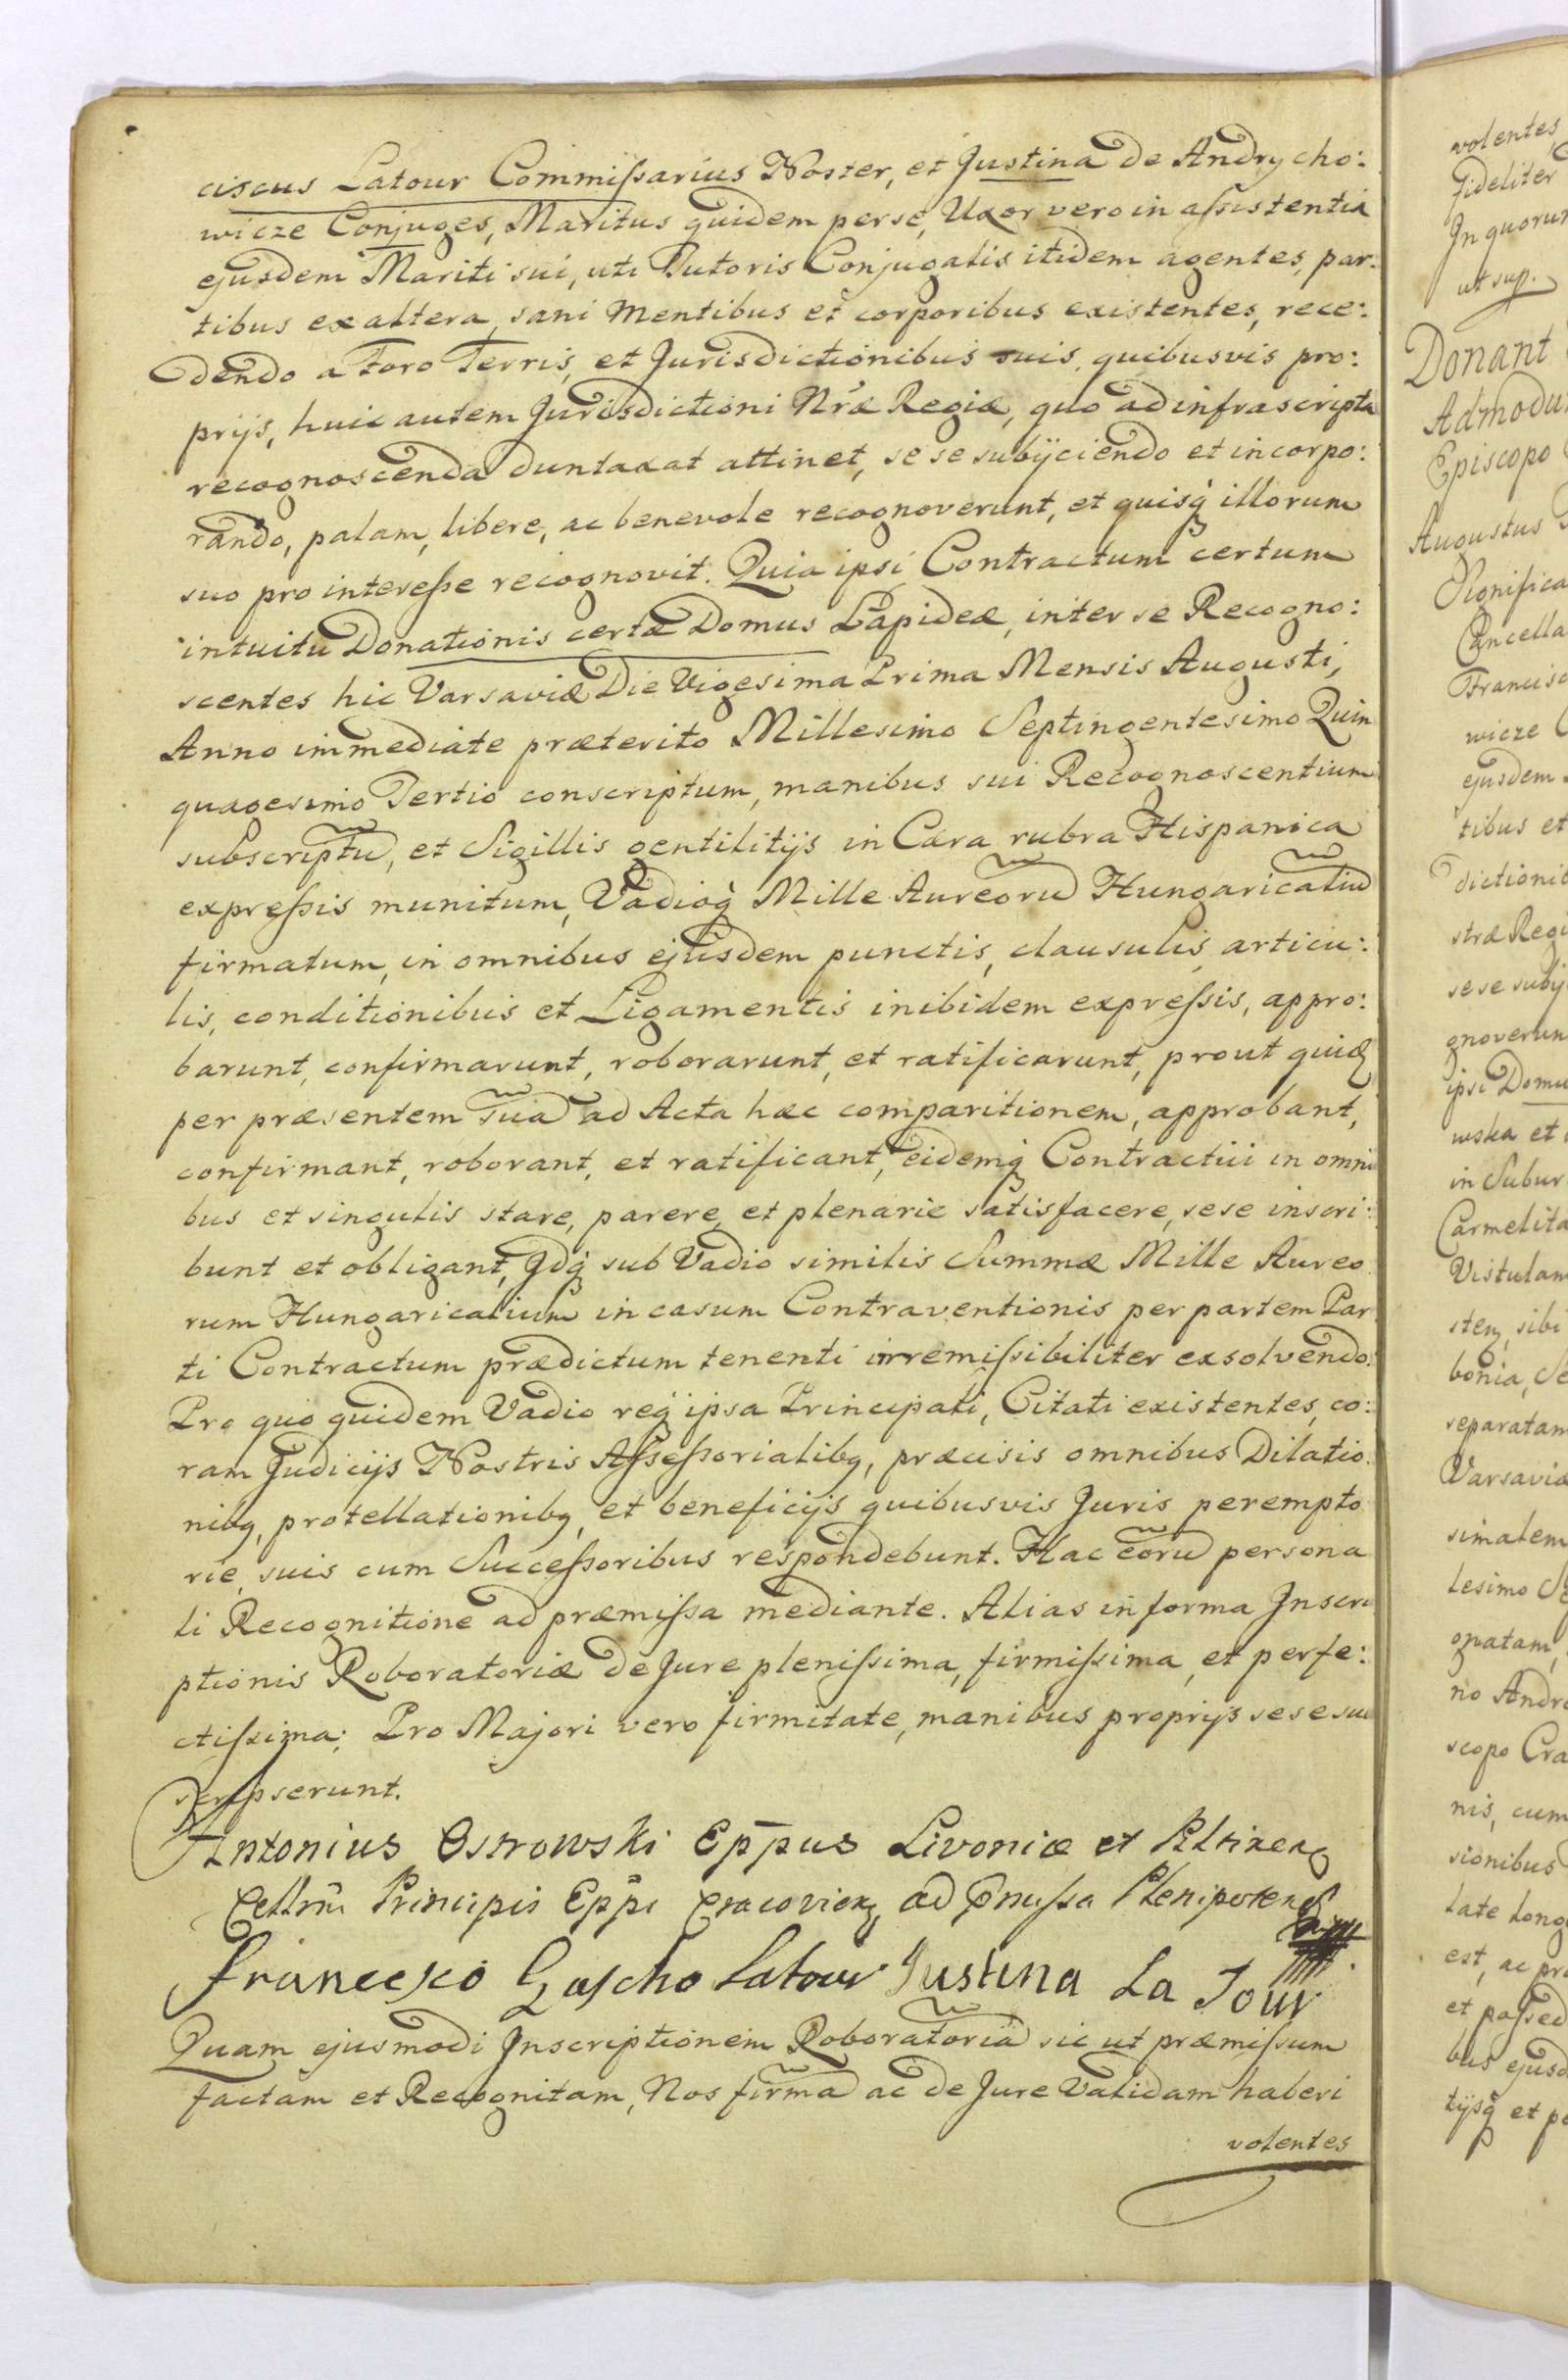 ciscus Latour Commissarius Noster, et Justina de Andrycho:
wicze Conjuges, Maritus quidem per se, Uxor vero in assistentia
ejusdem Mariti sui, uti Tutoris Conjugalis itidem agentes, par:
tibus ex altera, sani Mentibus et corporibus existentes, rece:
dendo a Foro Terris, et Jurisdictionibus suis quibusvis pro:
prijs, huic autem Jurisdictioni Nræ Regiæ, quo ad infrascripta
recognoscenda duntaxat attinet, se se subijciendo et incorpo:
rando, palam, libere, ac benevole recognoverunt, et quisq illorum
suo pro interesse recognovit. Quia ipsi Contractum certum
intuitu Donationis certæ Domus Lapideæ, inter se Recogno:
scentes hic Varsaviæ Die Vigesima Prima Mensis Augusti,
Anno immediate præterito Millesimo Septingentesimo Quin
quagesimo Tertio conscriptum, manibus sui Recognoscentium
subscriptũ, et Sigillis gentilitijs in Cera rubra Hispanica
expressis munitum, Vadioq Mille Aureorũ Hungaricaliũ
firmatum, in omnibus ejusdem punctis, clausulis articu:
lis, conditionibus et Ligamentis inibidem expressis, appro:
barunt, confirmarunt, roborarunt, et ratificarunt, prout quidẽ
per præsentem suã ad Acta hæc comparitionem, approbant,
confirmant, roborant, et ratificant, eidemq Contractui in omni
bus et singulis stare, parere, et plenarie satisfacere, sese inscri:
bunt et obligant, Idq sub Vadio similis Summæ Mille Aureo
rum Hungaricalium in casum Contraventionis per partem Par
ti Contractum prædictum tenenti irremissibiliter exsolvendo.
Pro quo quidem Vadio req ipsa Principali, Citati existentes, co:
ram Judicijs Nostris Assessorialibq, præcisis omnibus Dilatio
nibq, protellationibq, et beneficijs quibusvis Juris perempto
rie, suis cum Successoribus respondebunt. Hac eorũ persona
li Recognitione ad præmissa mediante. Alias in forma Inscri
ptionis Roboratoriæ de Jure plenissima, firmissima, et perfe:
ctissima; Pro Majori vero firmitate, manibus proprijs sese sub
scripserunt.
Antonius Ostrowski Eppus Livoniæ et Piltinenq
Cellmi Principis Eppi Cracovienq, ad pmissa Plenipotens
Francesco Gascho Latour Justina La Tour
Quam ejusmodi Inscriptionem Roboratoriã sic ut præmissum
factam et Recognitam, Nos firmã ac de Jure Validam haberi
volentes
volentes,
fideliter
In quorum
ut sup.
Donant
Admodu
Episcopo
Augustus
Significa
Cancella
Francisc
wicze
ejusdem
tibus et
dictionib
stræ Regi
se se subij
gnoverun
ipsi Domu
wska et
in Subur
Carmelita
Vistulam
sibi
bonia, Se
separatam
Varsaviæ
simalem
lesimo Se
gnatam,
no Andre
scopo Cra
nis, cum
sionibus
late long
est, ac pro
et possed
bus ejusd
tijsq et pe